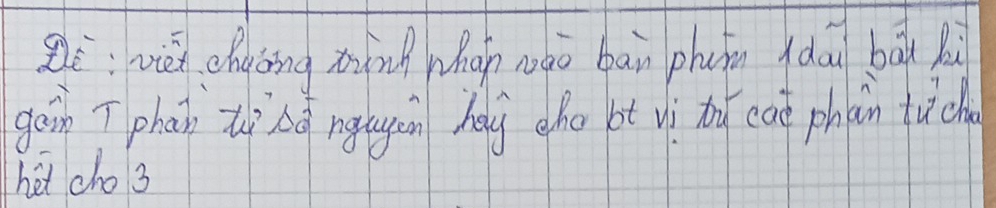 Đề: viết chương trình nhập vào bàn phím 1 dãy bất kì
gồm T phần tử số nguyên hãy cho bt vị trí các phần tử chia
hết cho 3